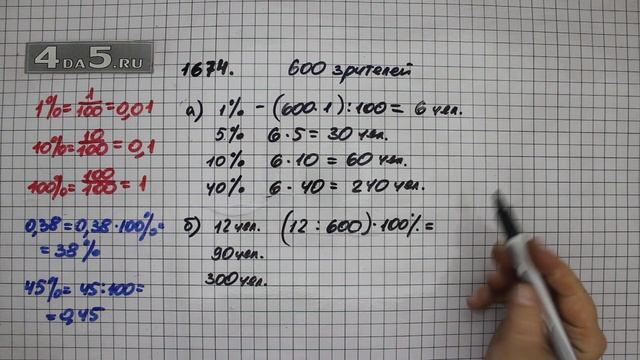 4DA5.RU
1674. 600 зрителей
1% = 1/100 = 0,01
10% = 10/100 = 0,1
100% = 100/100 = 1
0,38 = 0,38 · 100% =
= 38%
45% = 45 : 100 =
= 0,45
а) 1% – (600 · 1) : 100 = 6 чел.
5% 6 · 5 = 30 чел.
10% 6 · 10 = 60 чел.
40% 6 · 40 = 240 чел.
б) 12 чел. (12 : 600) · 100% =
90 чел.
300 чел.